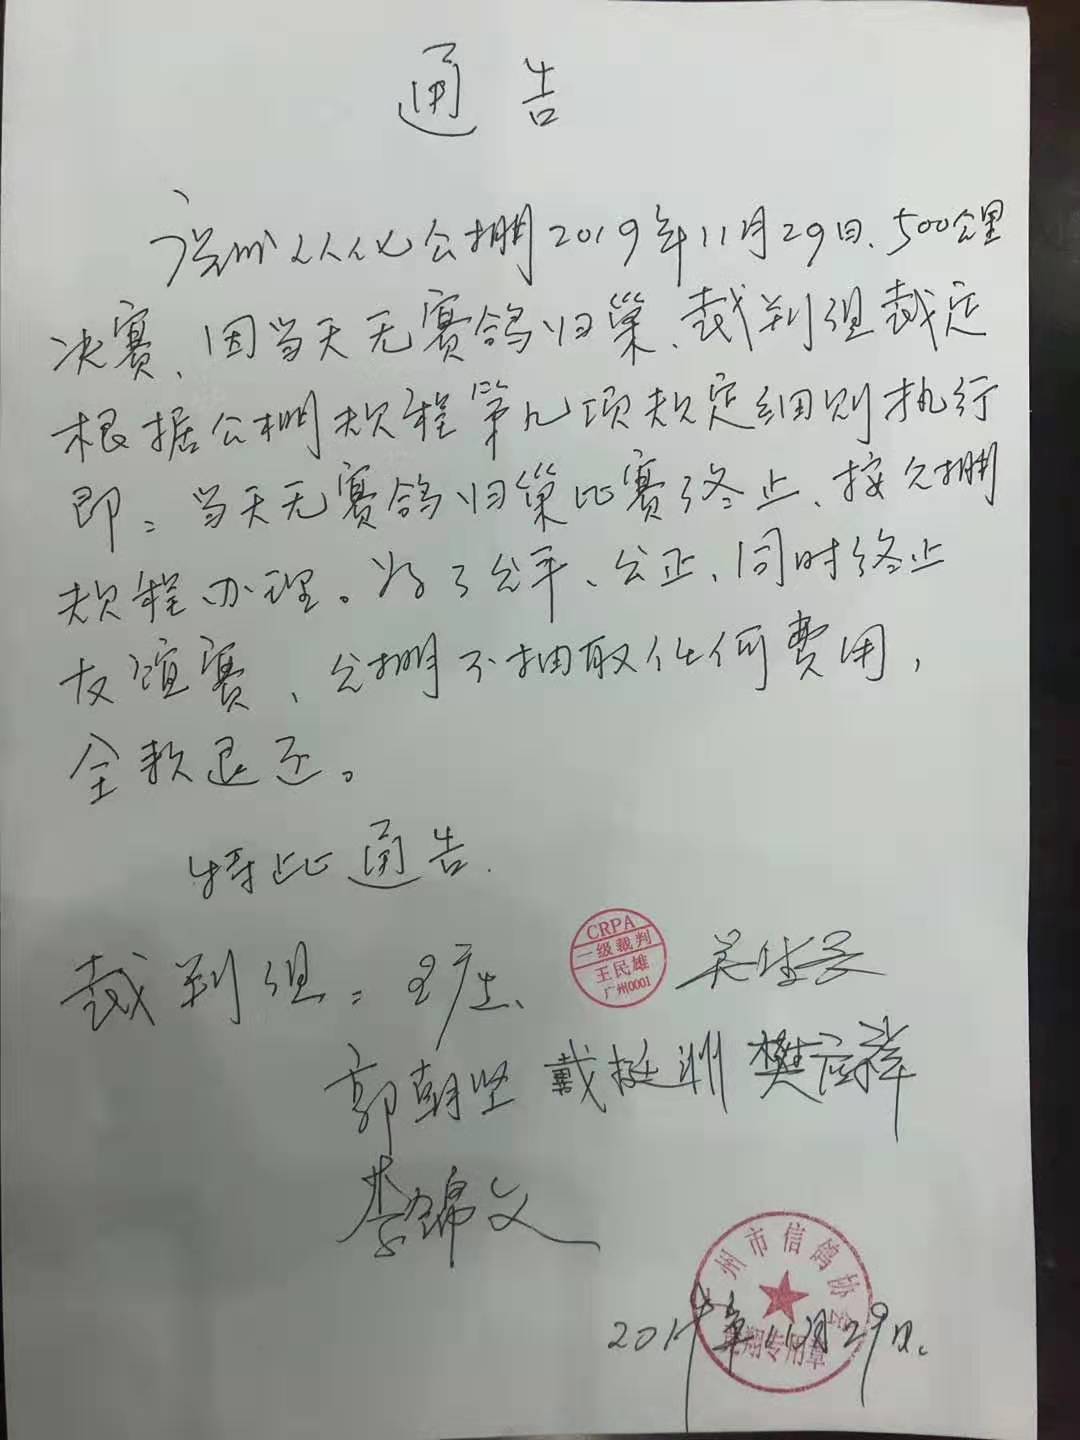 通告
广州从化公棚2019年11月29日、500公里
决赛、因当天无赛鸽归巢、裁判组裁定
根据公棚规程第九项规定细则执行
即：当天无赛鸽归巢比赛终止、按公棚
规程办理。为了公平、公正、同时终止
友谊赛、公棚不抽取任何费用，
全款退还。
特此通告.
裁判组：
CRPA
一级裁判
王民雄
广州0001
郭朝坚 戴挺洲 樊应祥
李锦文
州市信鸽协会
翔专用章
2019年11月29日.